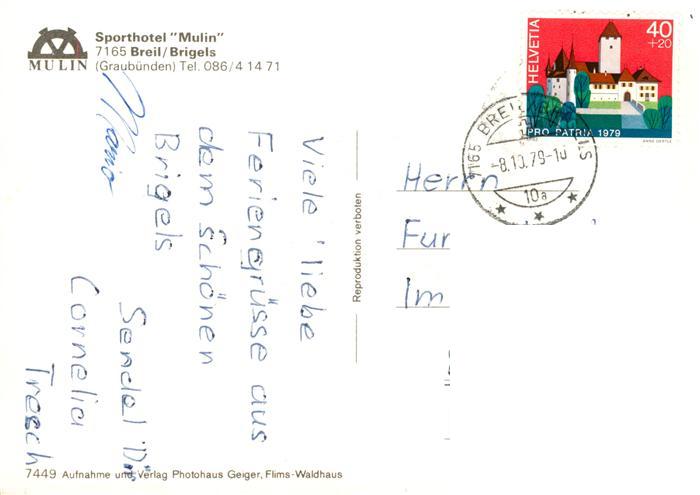 Sporthotel "Mulin"
7165 Breil/Brigels
(Graubünden) Tel. 086/4 14 71
MULIN
HELVETIA
40
+20
PRO PATRIA 1979
7165 BREIL/BRIGELS
-8.10.79-10
10a
Viele liebe
Feriengrüsse aus
dem schönen
Brigels
Sendet
Cornelia
Tresch
Reproduktion verboten
Herrn
Fur
Im
7449 Aufnahme und Verlag Photohaus Geiger, Flims-Waldhaus